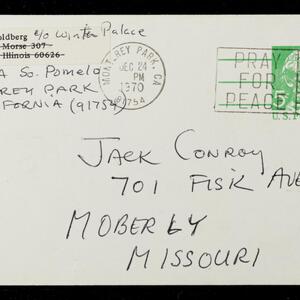 oldberg c/o Winter Palace
Morse 307
Illinois 60626
A So. Pomelo
REY PARK
IFORNIA (91754)
MONTEREY PARK, CA
DEC 24
PM
1970
91754
PRAY
FOR
PEACE
U.S.
JACK CONROY
701 FISK AVE
MOBERLY
MISSOURI